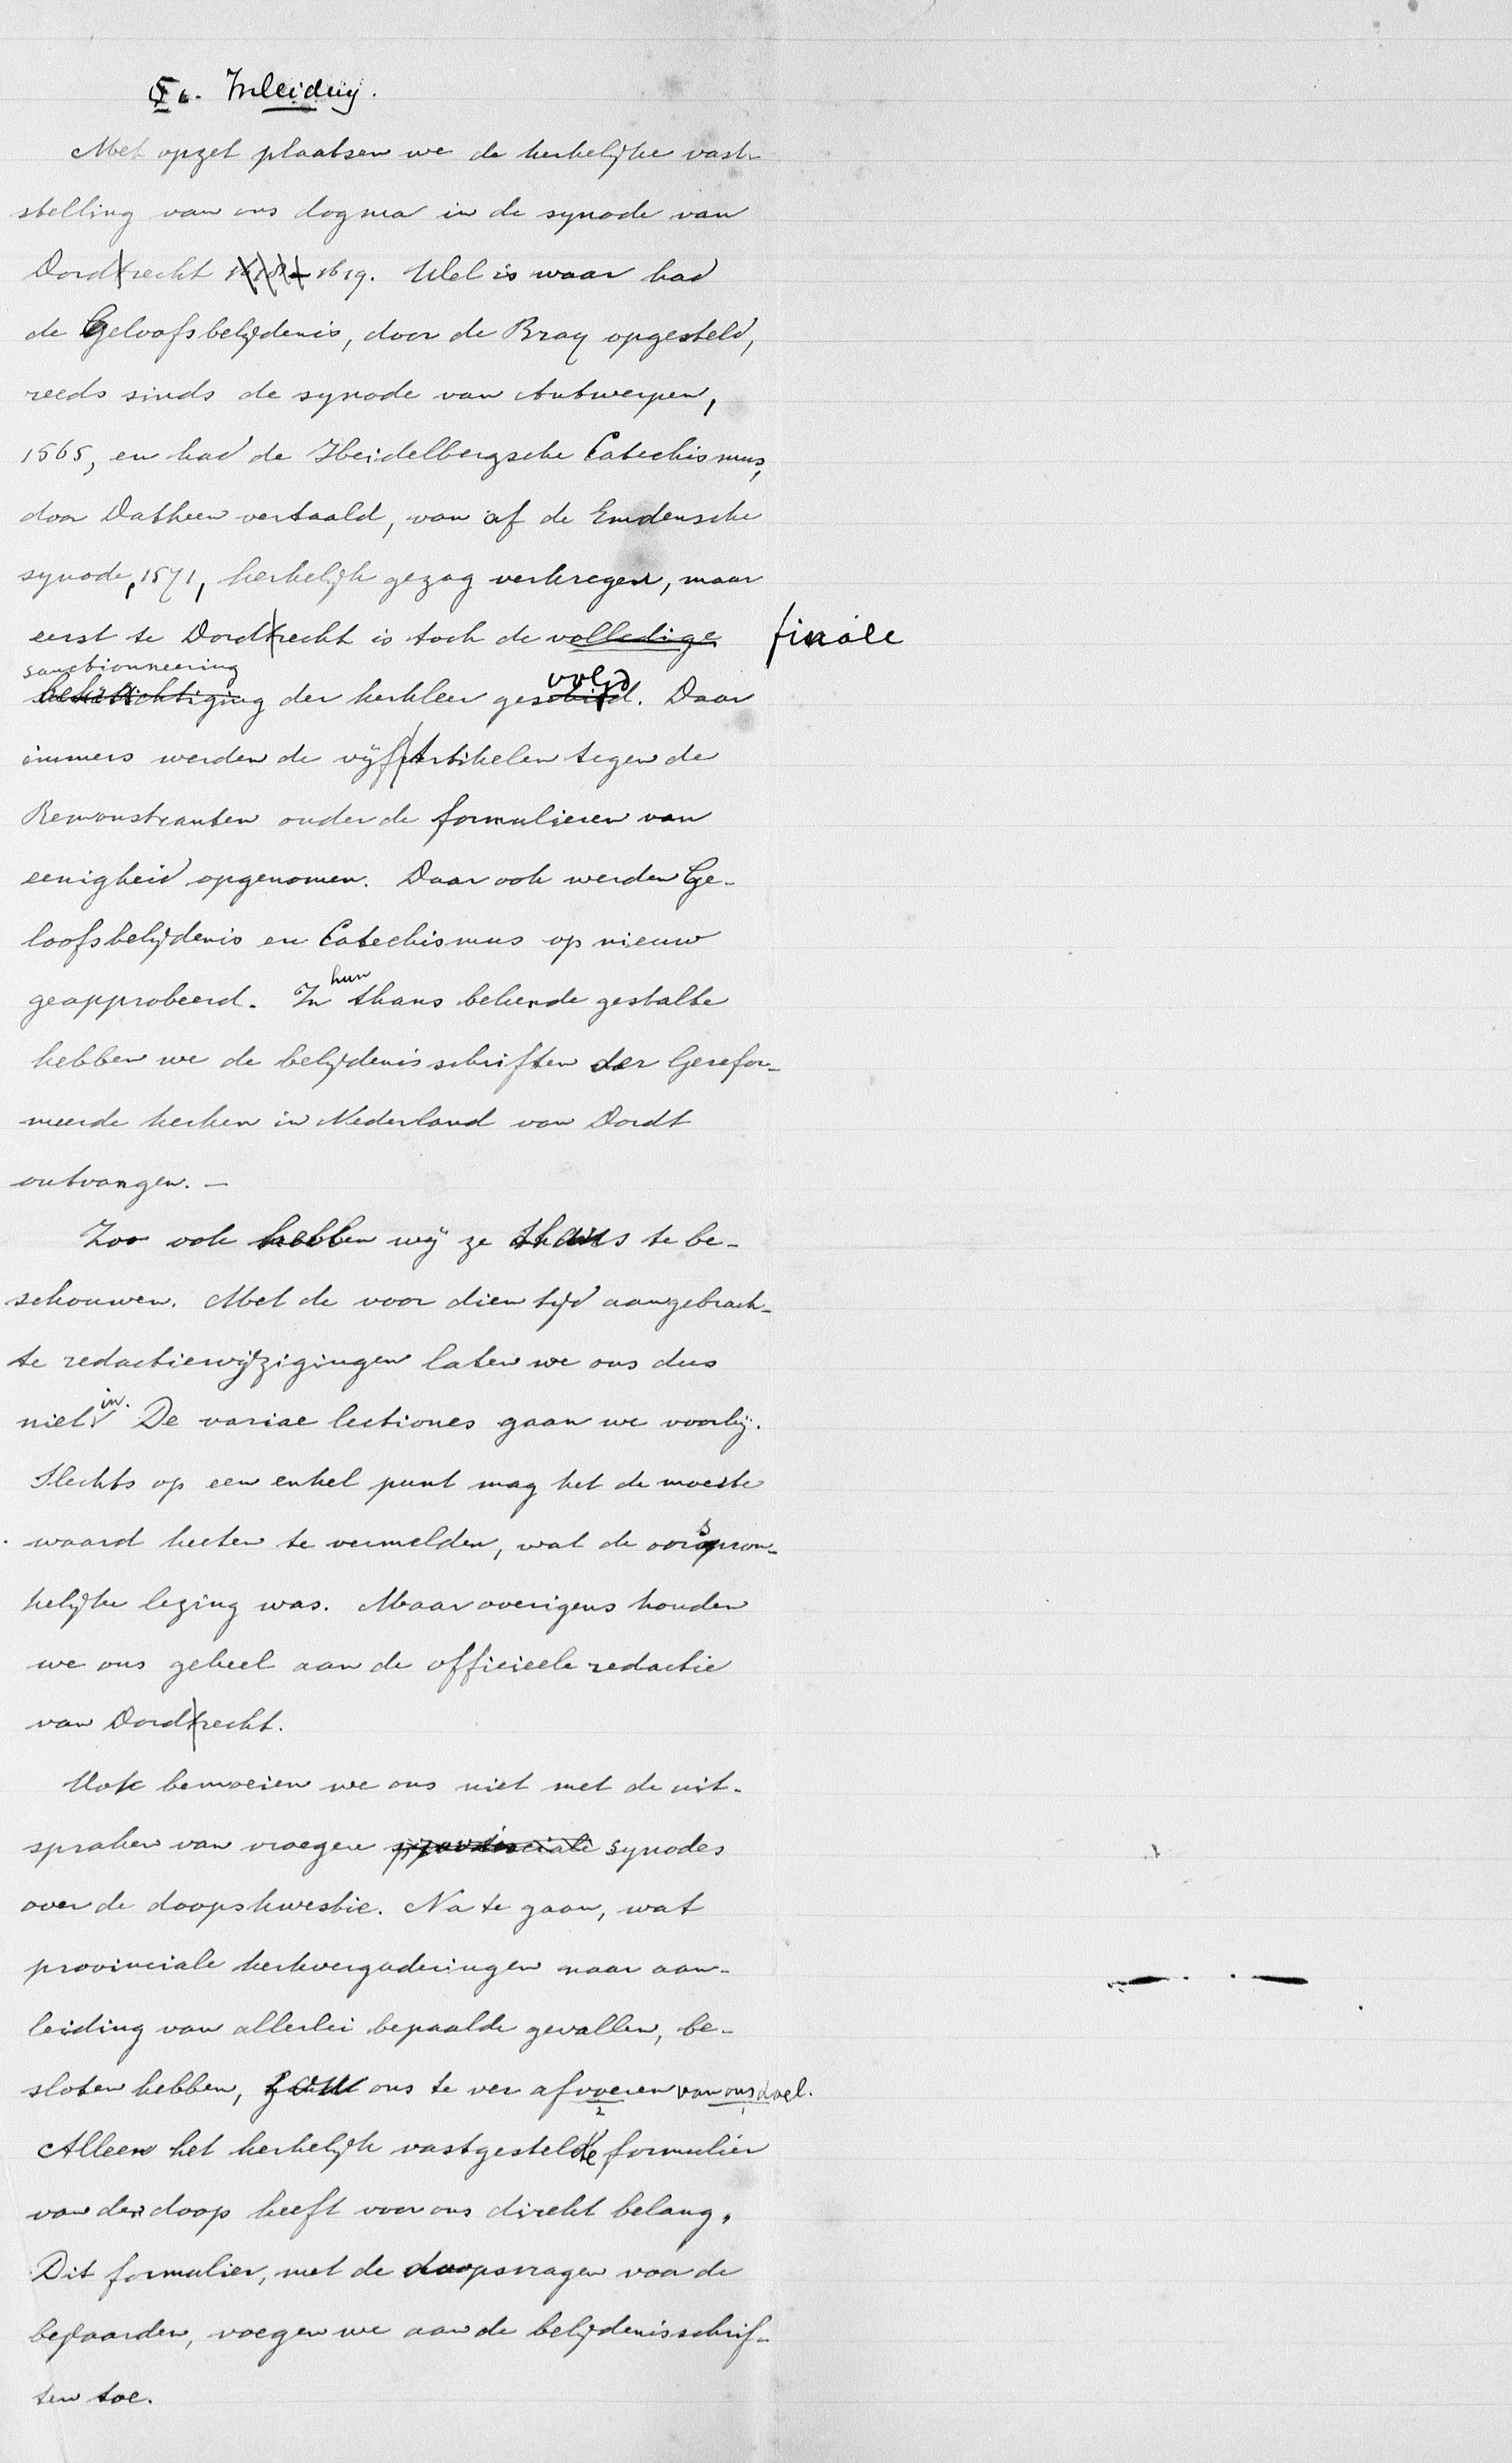 § 1. Inleiding.
Met opzet plaatsen we de kerkelijke vast-
stelling van ons dogma in de synode van
Dordrecht 1618-1619. Wel is waar had
de Geloofsbelijdenis, door de Bray opgesteld,
reeds sinds de synode van Antwerpen,
1565, en had de Heidelbergsche Catechismus,
door Datheen vertaald, van af de Emdensche
synode, 1571, kerkelijk gezag verkregen, maar
eerst te Dordrecht is toch de volledige finale
sanctionneering
bekrachtiging der kerkleer gevolgd. Daar
immers werden de vijf artikelen tegen de
Remonstranten onder de formulieren van
eenigheid opgenomen. Daar ook werden Ge-
loofsbelijdenis en Catechismus op nieuw
geapprobeerd. In hun thans bekende gestalte
hebben we de belijdenisschriften der Gerefor-
meerde kerken in Nederland van Dordt
ontvangen. —
Zoo ook hebben wij ze thans te be-
schouwen. Met de voor dien tijd aangebrach-
te redactiewijzigingen laten we ons dus
niet in. De variae lectiones gaan we voorbij.
Slechts op een enkel punt mag het de moeite
waard heeten te vermelden, wat de oorspron-
kelijke lezing was. Maar overigens houden
we ons geheel aan de officieele redactie
van Dordrecht.
Ook bemoeien we ons niet met de uit-
spraken van vroegere provinciale synodes
over de doopskwestie. Na te gaan, wat
provinciale kerkvergaderingen naar aan-
leiding van allerlei bepaalde gevallen, be-
sloten hebben, zou ons te ver afvoeren van ons doel.
2 1
Alleen het kerkelijk vastgestelde formulier
van den doop heeft voor ons direkt belang.
Dit formulier, met de doopsvragen voor de
bejaarden, voegen we aan de belijdenisschrif-
ten toe.